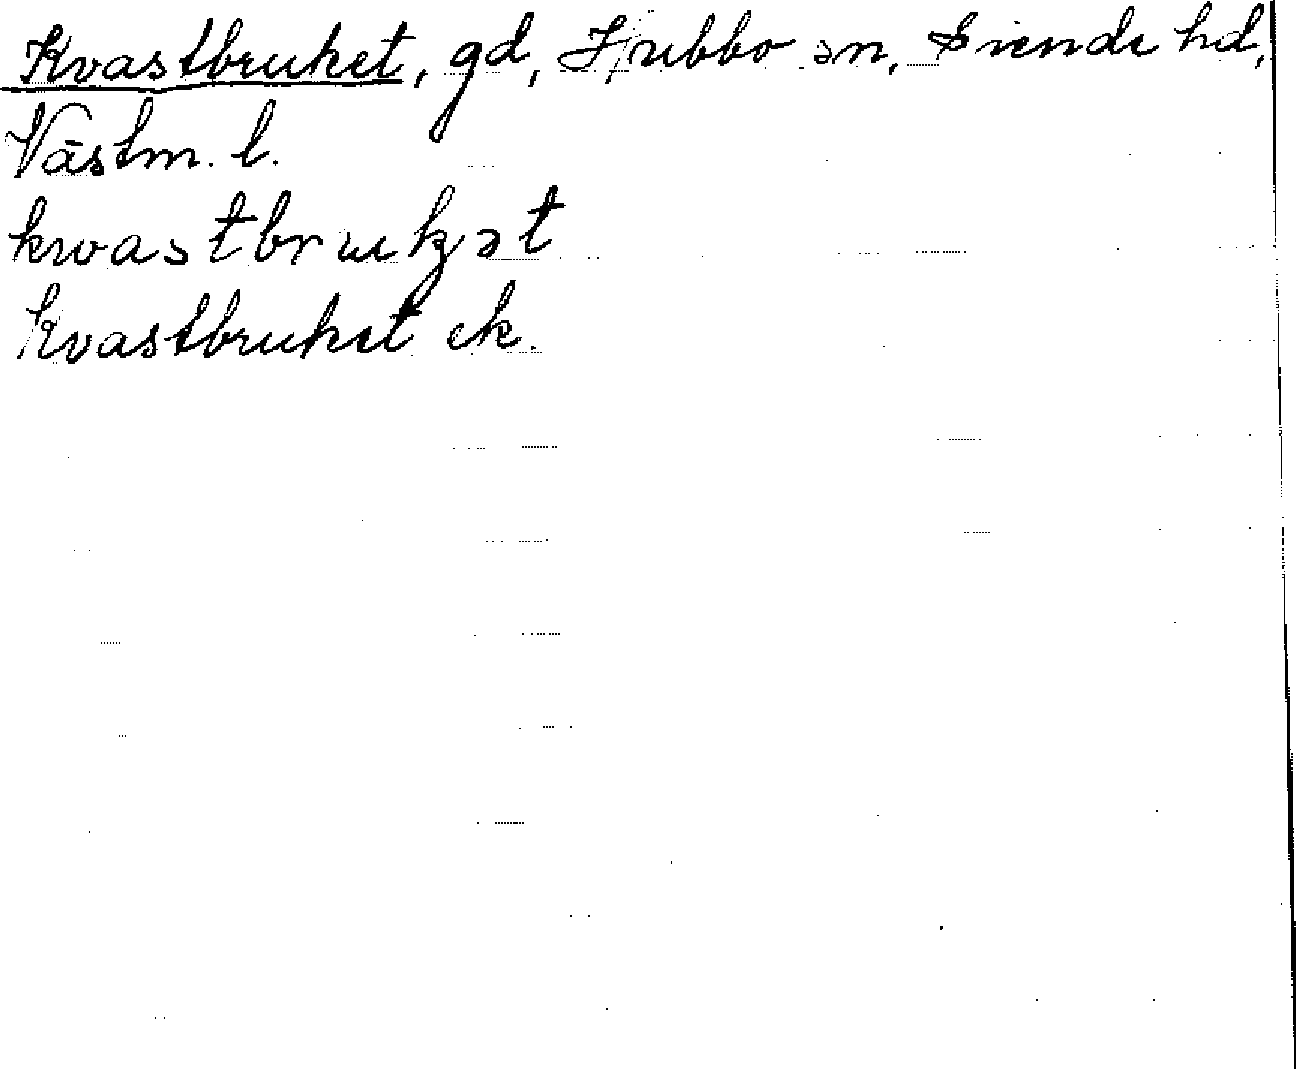 Kvastbruket, gd, Hubbo sn, Siende hd,
Västm. l.
kvastbrukət
Kvastbruket ek.